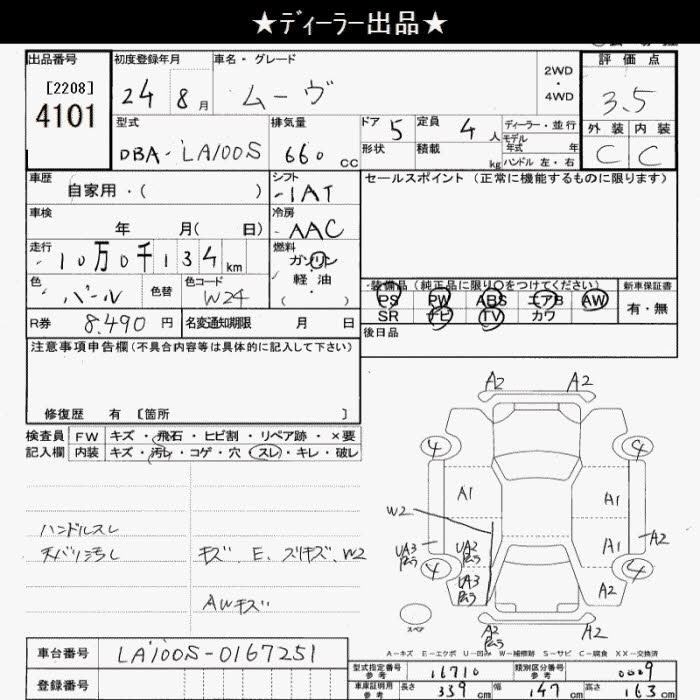 ★ディーラー出品★
出品番号 初度登録年月 車名・グレード 2WD・4WD 評価点
[2208]
4101
24 8月 ムーヴ 3.5
外装 内装
C C
型式 排気量 ドア 5 定員 4人 ディーラー・並行
モデル年式 年
DBA-LA100S 660cc 形状 積載 kg ハンドル 左・右
車歴 シフト セールスポイント(正常に機能するものに限ります)
自家用・( ) -IAT
車検 冷房
年 月( 日) AAC
走行 燃料
10万0千134km ガソリン
軽油
( )
色 色替 色コード 装備品(純正品に限り○をつけてください) 新車保証書
パール W24 PS PW ABS エアB AW 有・無
SR ナビ TV カワ
R券 8,490円 名変通知期限 月 日 後日品
注意事項申告欄(不具合内容等は具体的に記入して下さい)
修復歴 有 [箇所 ]
検査員 FW キズ・飛石・ヒビ割・リペア跡・×要
記入欄 内装 キズ・汚レ・コゲ・穴・スレ・キレ・破レ
ハンドルスレ
天バリ汚レ キズ、E、スリキズ、W2
AWキズ
A2 A2
4 4
A1 A1
W2
UA3 UA2 A1 A2
4 UA3 A2 4
スペア A2 A2
A-キズ E-エクボ U-凹み W-補修跡 S-サビ C-腐食 XX-交換済
車台番号 LA100S-0167251
登録番号
型式指定番号 参考 16710 類別区分番号 参考 0009
車庫証明用 参考 長さ 339cm 幅 147cm 高さ 163cm